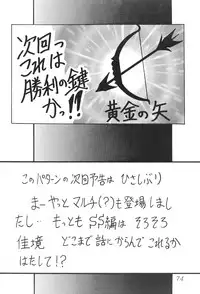 次回っ
これは
勝利の鍵
かっ!!
黄金の矢
このパターンの次回予告は ひさしぶり
まーやっとマルチ(?)も登場しまし
たし… もっとも SS編は そろそろ
佳境 どこまで話にからんでこれるか
はたして!?
74